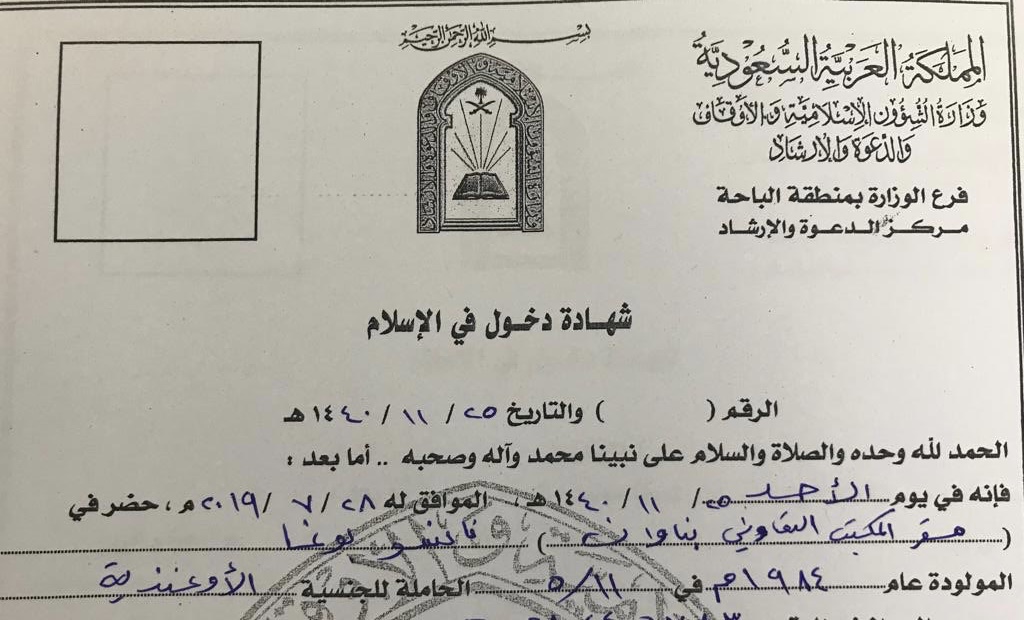 بسم الله الرحمن الرحيم
المملكة العربية السعودية
وزارة الشؤون الإسلامية والأوقاف
والدعوة والإرشاد
فرع الوزارة بمنطقة الباحة
مركز الدعوة والإرشاد
شهادة دخول في الإسلام
الرقم ( ) والتاريخ ٢٥ / ١١ / ١٤٤٠ هـ
الحمد لله وحده والصلاة والسلام على نبينا محمد وآله وصحبه .. أما بعد :
فإنه في يوم الأحد ٢٥ / ١١ / ١٤٤٠ هـ ، الموافق له ٢٨ / ٧ / ٢٠١٩ م ، حضر في
( مقر المكتب التعاوني ) يوغا
المولودة عام ١٩٨٤م في ١١/٥ الحاملة للجنسية الأوغندية